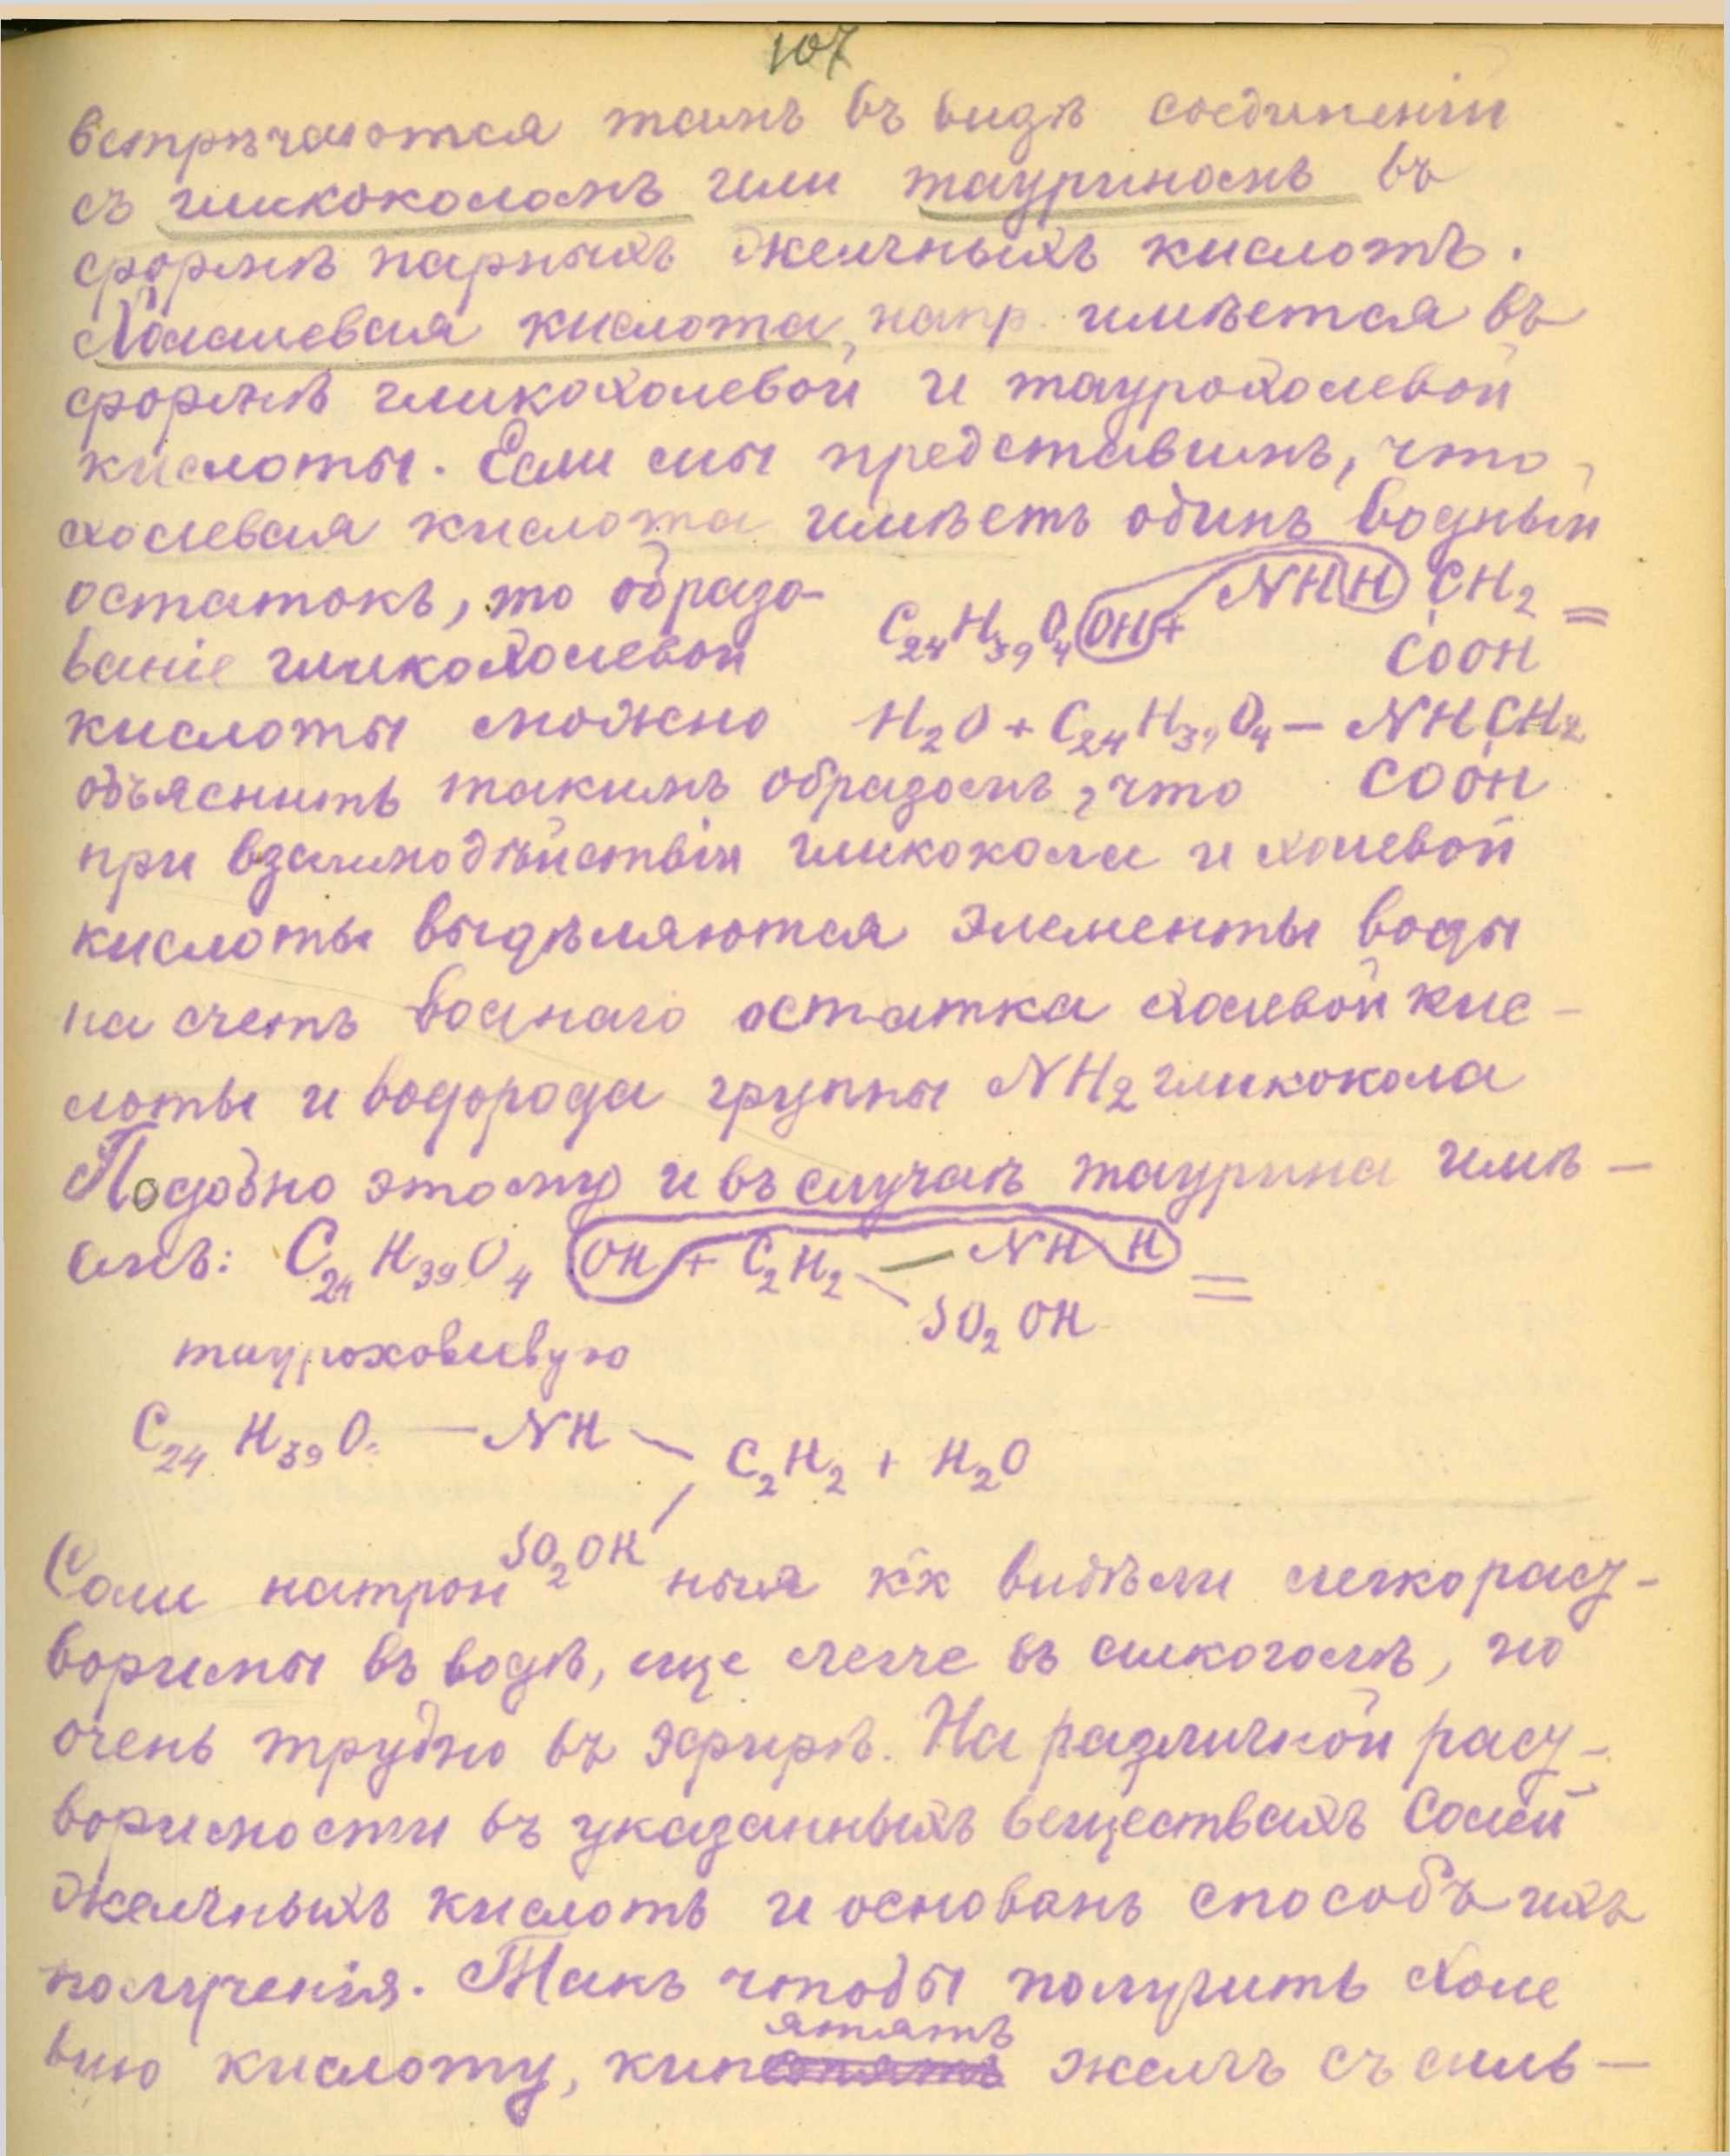 107
встрѣчаются такъ въ видѣ соединеній
съ гликоколомъ или тауриномъ въ
формѣ парныхъ желчныхъ кислотъ.
Холалевая кислота, напр. имѣется въ
формѣ гликохолевой и таурохолевой
кислоты. Если мы представимъ, что
холевая кислота имѣетъ одинъ водный
остатокъ, то образо-
C₂₄H₃₉O₄OH + NHH CH₂ =
COOH
ваніе гликохолевой
кислоты можно
H₂O + C₂₄H₃₉O₄ — NHCH₂
COOH
объяснить такимъ образомъ, что
при взаимодѣйствіи гликокола и холевой
кислоты выдѣляются элементы воды
на счетъ воднаго остатка холевой кис-
лоты и водорода группы NH₂ гликокола
Подобно этому и въ случаѣ таурина имѣ-
емъ: C₂₄H₃₉O₄ OH + C₂H₂ — NH H =
SO₂OH
таурохолевую
C₂₄H₃₉O₄ — NH — C₂H₂ + H₂O
SO₂OH
Соли натрон ныя кк видѣли легко раст-
воримы въ водѣ, еще легче въ алкоголѣ, но
очень трудно въ эфирѣ. На различной раст-
воримости въ указанныхъ веществахъ Солей
желчныхъ кислотъ и основанъ способъ ихъ
полученія. Такъ чтобы получить холе
вую кислоту, кипятятъ желчь съ силь-